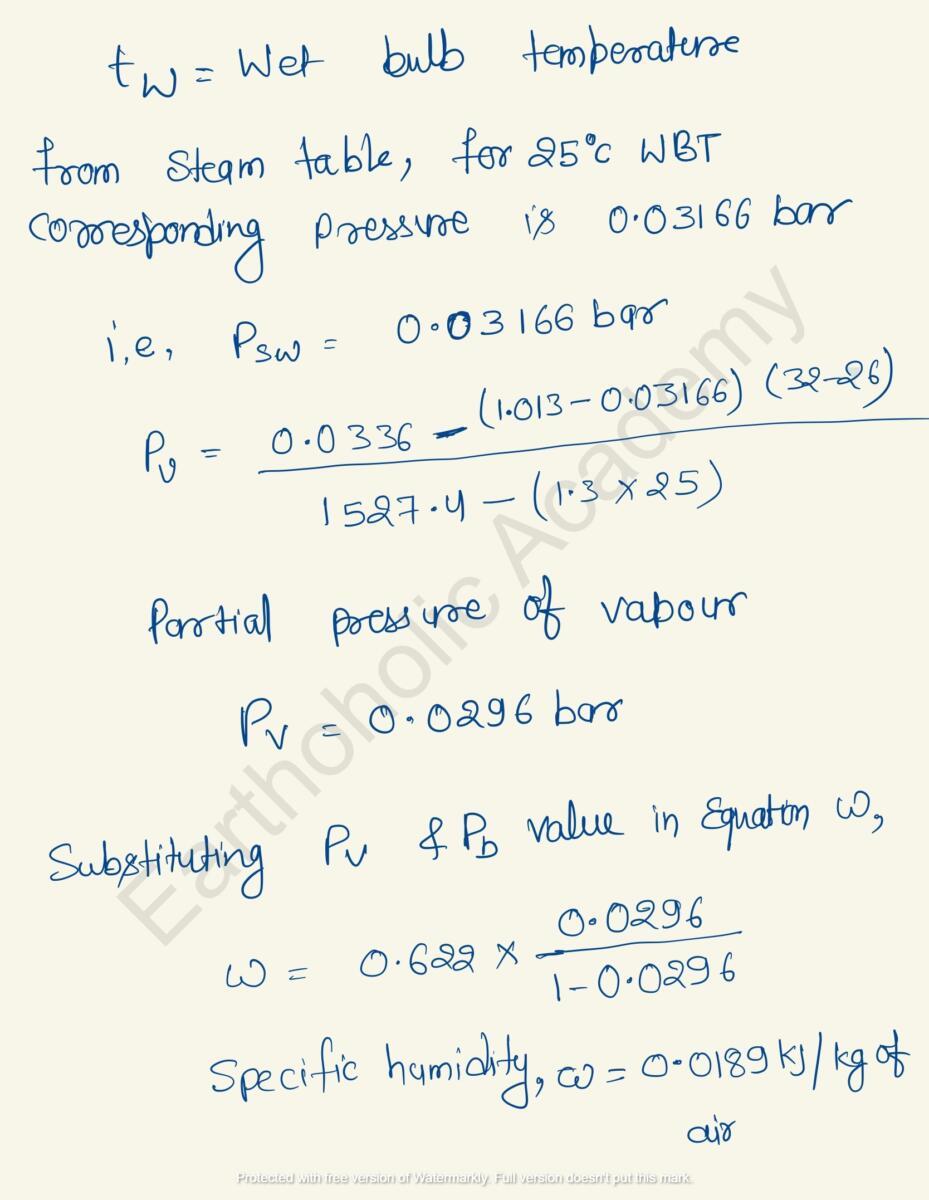 tw = Wet bulb temperature
from Steam table, for 25°C WBT
corresponding pressure is 0.03166 bar
i,e, Psw = 0.03166 bar
Pv = 0.0336 - (1.013-0.03166) (32-26)
1527.4 - (1.3 × 25)
Partial pressure of vabour
Pv = 0.0296 bar
Substituting Pv & Pb value in Equation ω,
ω = 0.622 × 0.0296
1-0.0296
Specific humidity, ω = 0.0189 kJ/kg of
air
Earthoholic Academy
Protected with free version of Watermarkly. Full version doesn't put this mark.